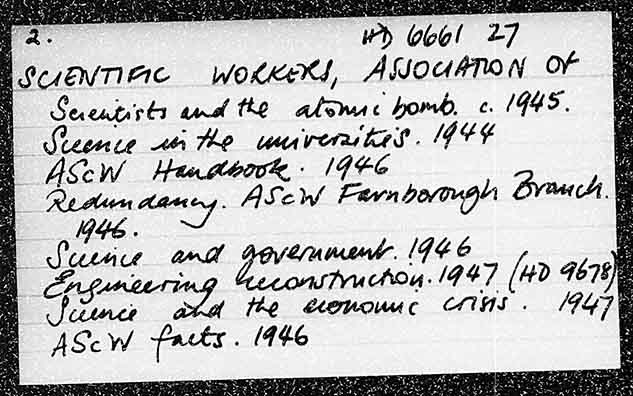 2. HD 6661 27
SCIENTIFIC WORKERS, ASSOCIATION OF
Scientists and the atomic bomb. c. 1945.
Science in the universities. 1944
AScW Handbook. 1946
Redundancy. AScW Farnborough Branch.
1946.
Science and government. 1946
Engineering reconstruction. 1947 (HD 9678)
Science and the economic crisis. 1947
AScW facts. 1946